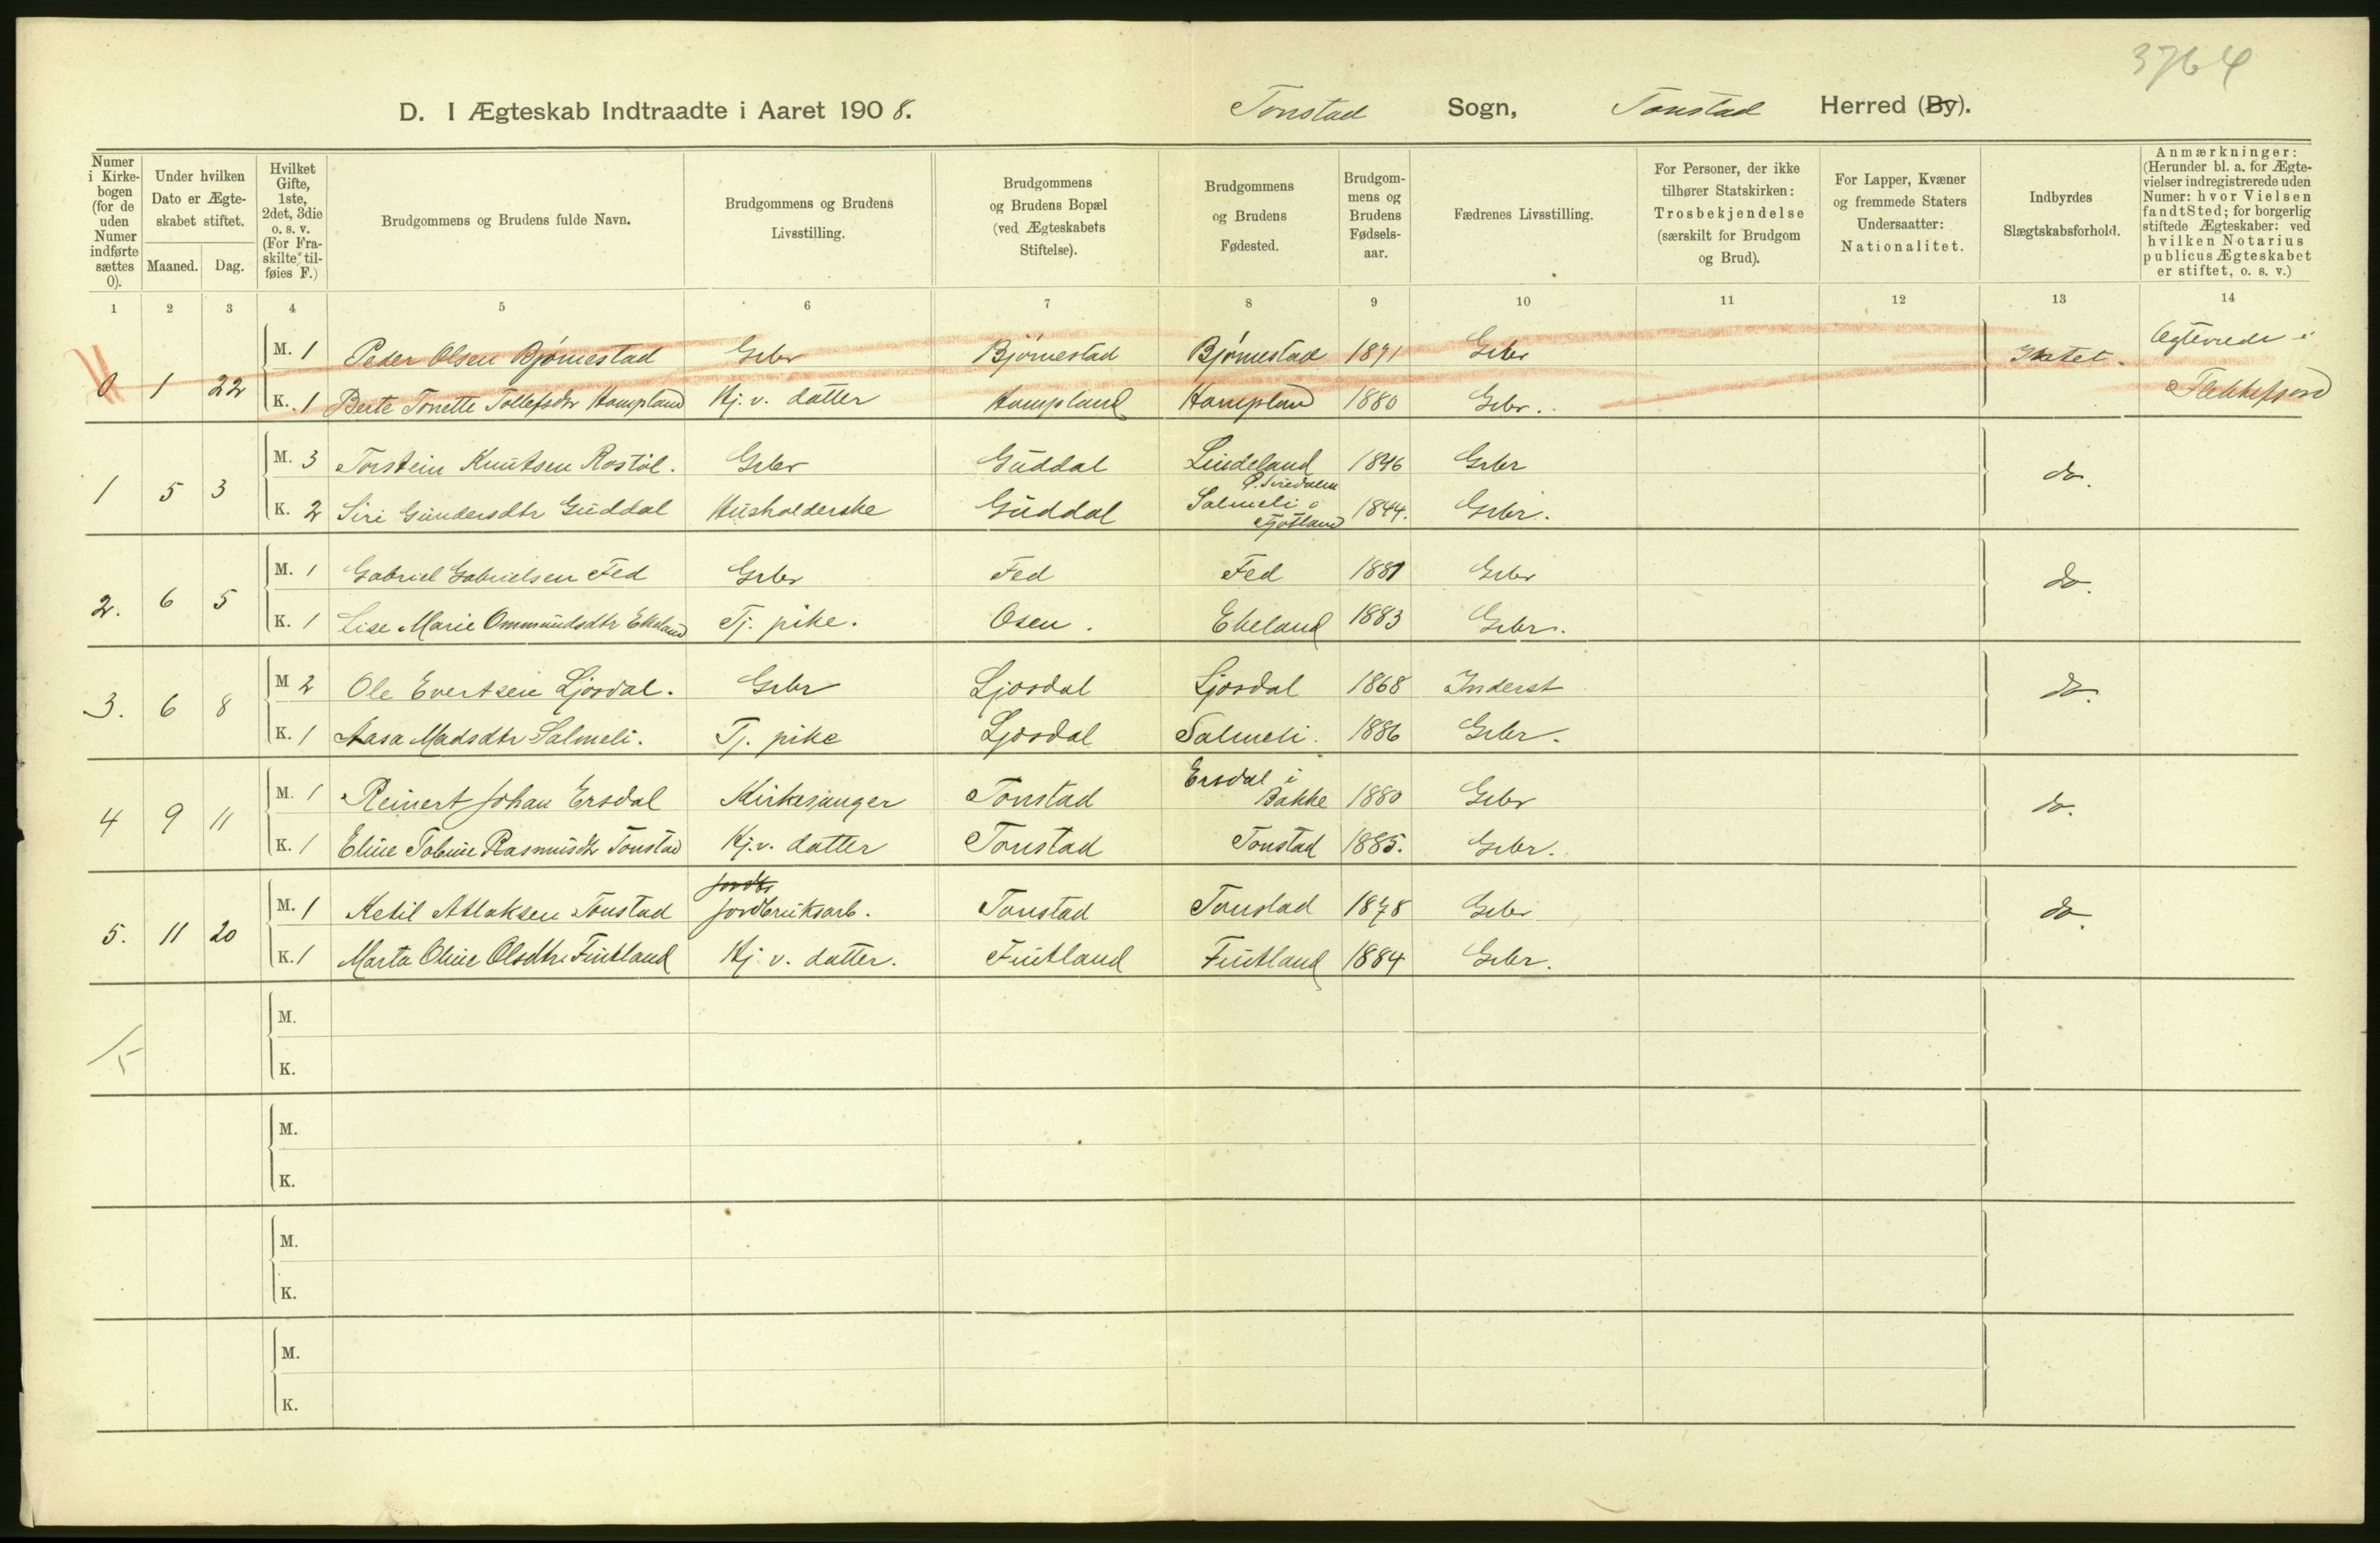 3764
D. I Ægteskab Indtraadte i Aaret 1908. Tonstad Sogn, Tonstad Herred (By).
Numer i Kirkebogen (for de uden Numer indførte sættes 0).
Under hvilken Dato er Ægteskabet stiftet.
Maaned. Dag.
Hvilket Gifte, 1ste, 2det, 3die o. s. v. (For Fraskilte tilføies F.)
Brudgommens og Brudens fulde Navn.
Brudgommens og Brudens Livsstilling.
Brudgommens og Brudens Bopæl (ved Ægteskabets Stiftelse).
Brudgommens og Brudens Fødested.
Brudgommens og Brudens Fødselsaar.
Fædrenes Livsstilling.
For Personer, der ikke tilhører Statskirken: Trosbekjendelse (særskilt for Brudgom og Brud).
For Lapper, Kvæner og fremmede Staters Undersaatter: Nationalitet.
Indbyrdes Slægtskabsforhold.
Anmærkninger: (Herunder bl. a. for Ægtevielser indregistrerede uden Numer: hvor Vielsen fandt Sted; for borgerlig stiftede Ægteskaber: ved hvilken Notarius publicus Ægteskabet er stiftet, o. s. v.)
1 2 3 4 5 6 7 8 9 10 11 12 13 14
M. 1 Peder Olsen Bjørnestad Gbr Bjørnestad Bjørnestad 1871 Gbr Intet. Ægteviede i
0 1 22 K. 1 Berte Tonette Tollefsdtr Hompland Kj. v. datter Hompland Hompland 1880 Gbr. Flekkefjord
M. 3 Torstein Knutsen Rostöl. Gbr Guddal Lindeland Ø. Siredalen 1846 Gbr
1 5 3 do.
K. 2 Siri Gundersdtr Guddal Husholderske Guddal Salmeli i Gyland 1844. Gbr.
M. 1 Gabriel Gabrielsen Fed Gbr Fed Fed 1881 Gbr
2. 6 5 do.
K. 1 Lise Marie Ommundsdtr Ekeland Tj. pike. Osen. Ekeland 1883 Gbr.
M 2 Ole Evertsen Ljosdal. Gbr Ljosdal Ljosdal 1868 Inderst
3. 6 8 do.
K. 1 Aasa Madsdtr Salmeli. Tj. pike Ljosdal Salmeli. 1886 Gbr.
M. 1 Reinert Johan Ersdal Kirkesanger Tonstad Ersdal i Bakke 1880 Gbr
4 9 11 do.
K. 1 Eline Tobine Rasmusdtr Tonstad Kj. v. datter Tonstad Tonstad 1885. Gbr.
Jordbr
M. 1 Ketil Atlaksen Tonstad Jordbruksarb. Tonstad Tonstad 1878 Gbr
5. 11 20 do.
K. 1 Marta Oline Olsdtr. Fintland Kj. v. datter. Fintland Fintland 1884 Gbr.
M.
5
K.
M.
K.
M.
K.
M.
K.